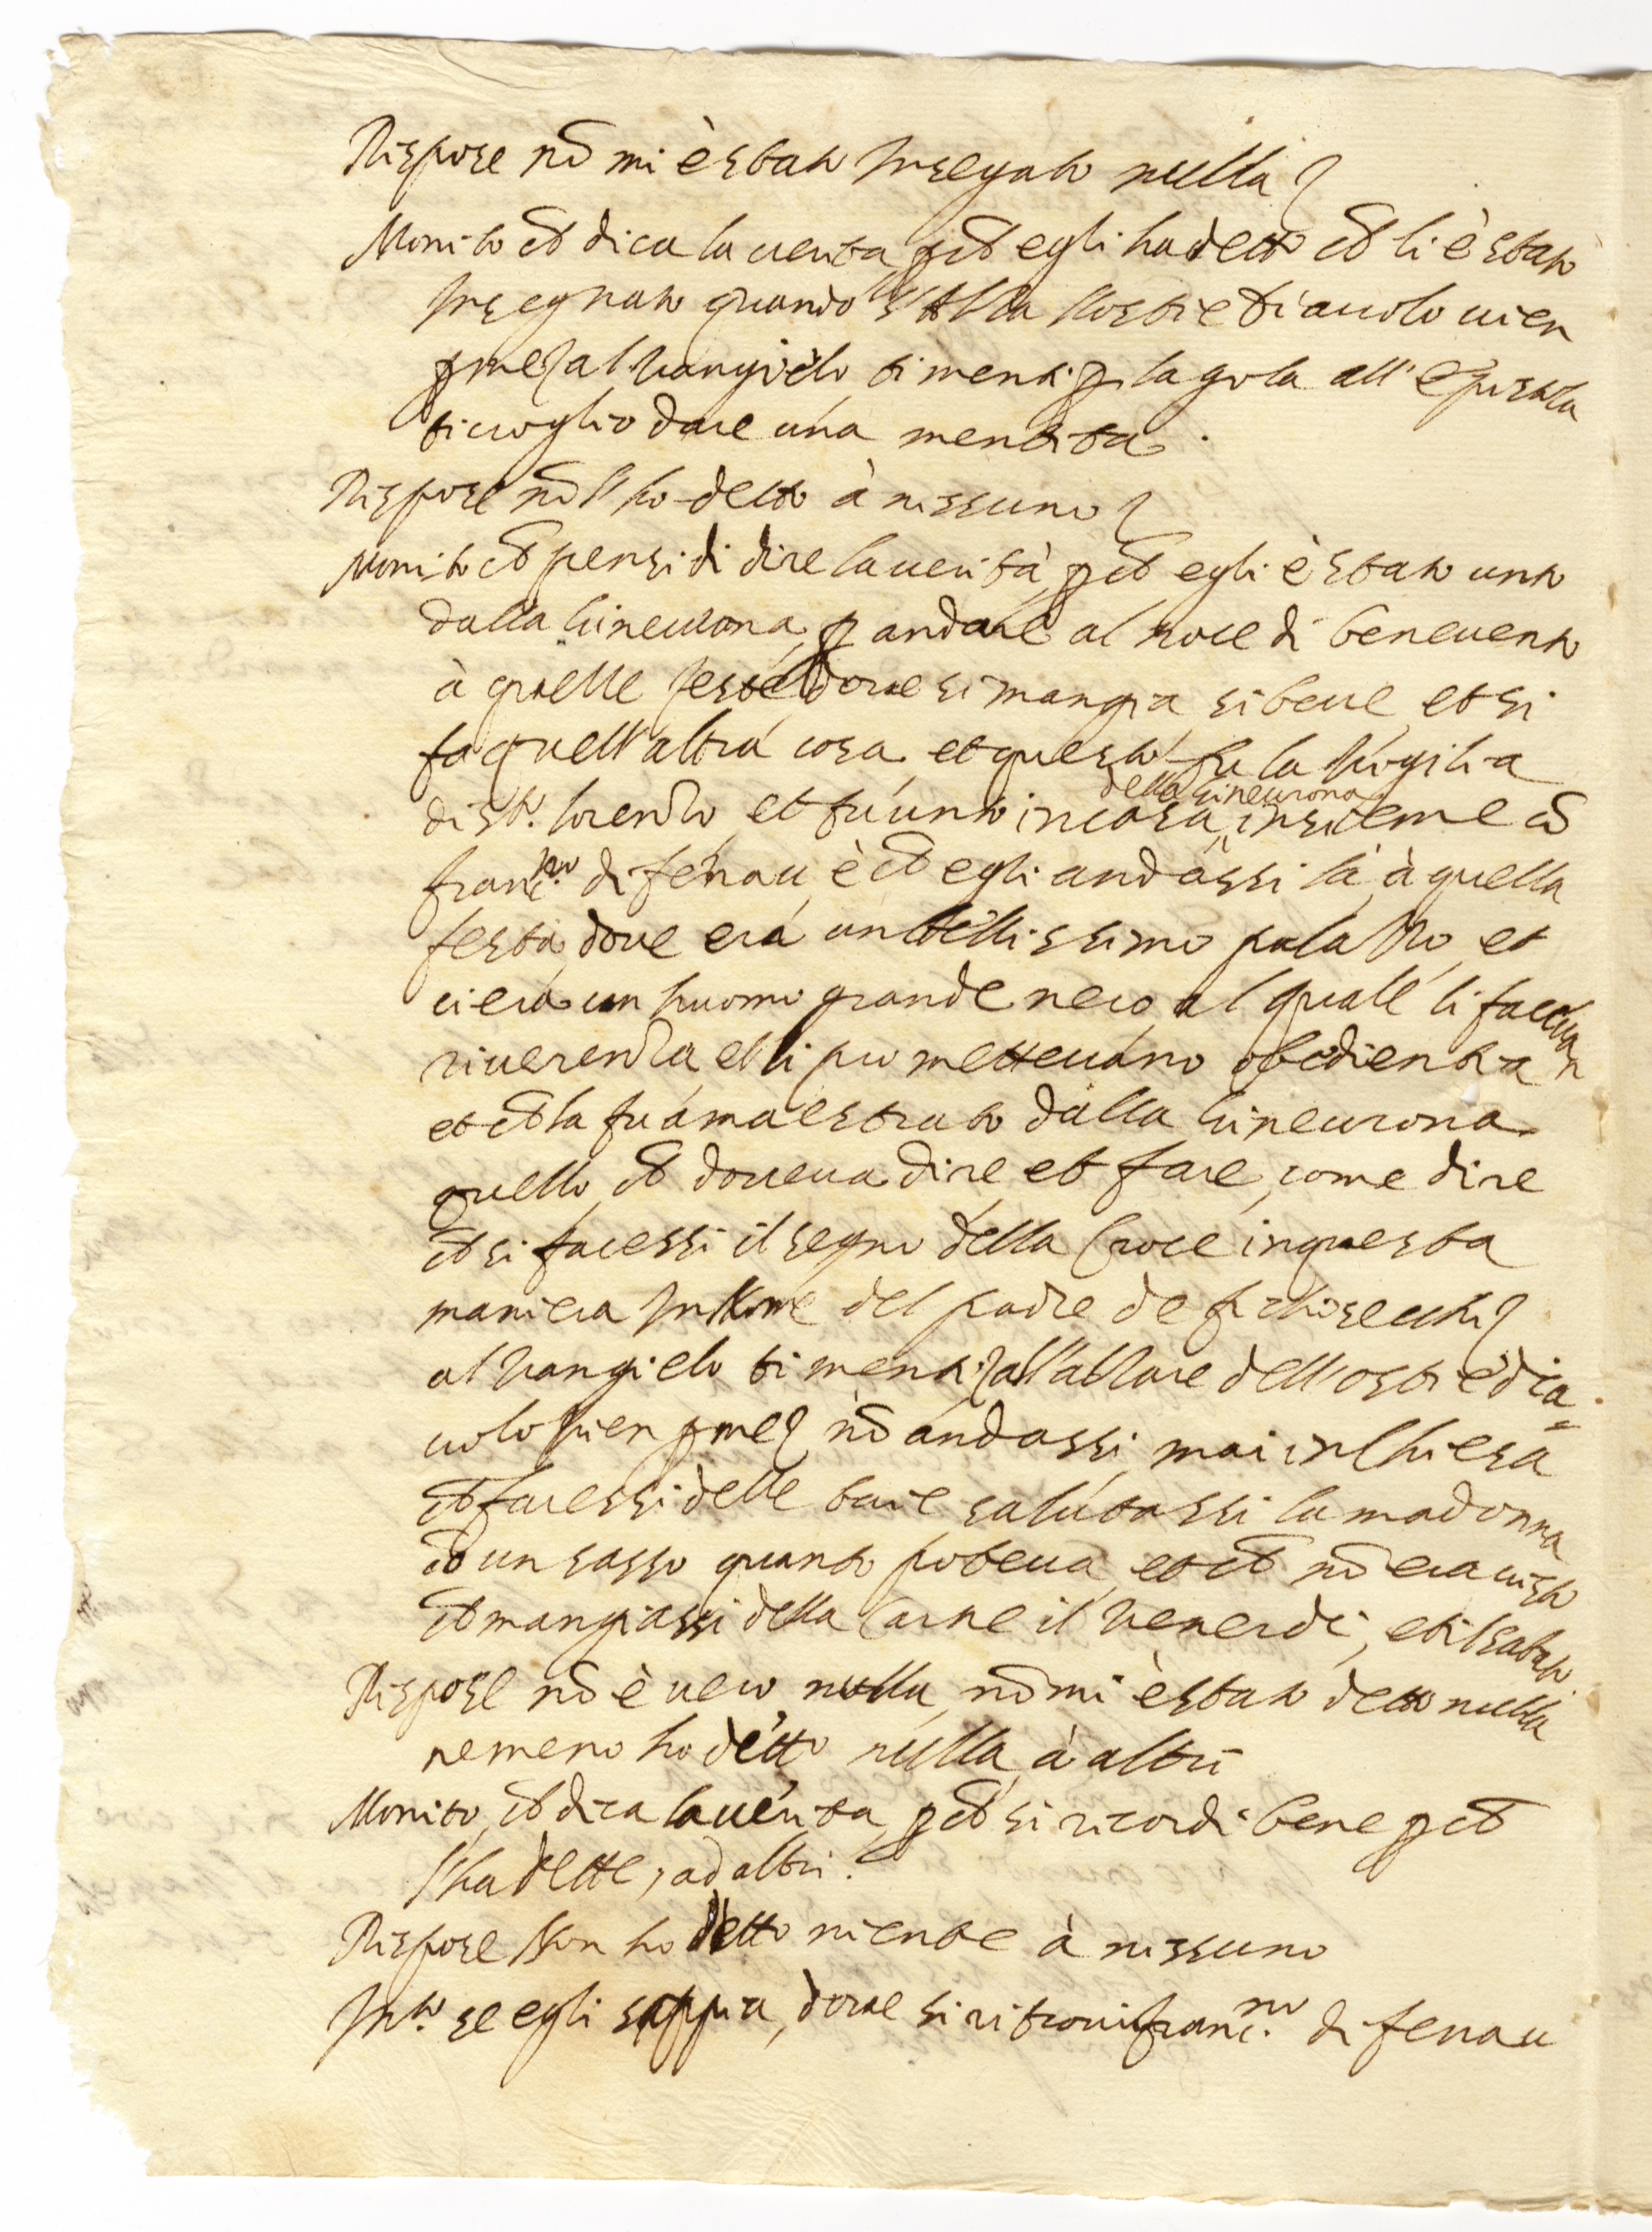 Rispose nō mi è stato insegnato nulla
Monito ch̄ dica la uerita p̱ch̄ egli ha detto ch̄ li è stato
insegnato quando s'alza l'ostie diauolo uien
p̱ me, al Vangielo ti menti p̱ la gola all'epistola
ti uoglio dare una mentita.
Rispose nō l'ho detto à nissuno
Monito ch̄ pensi di dire la uerità p̱ch̄ egli è stato unto
dalla p̱ andare al noce di beneuento
à quelle feste doue si mangia si beue et si
fa quell'altra cosa et questo fu la Vigilia
di S.to lorenzo et fu unto in casa insieme cō
franc.co di fenau è ch̄ egli andassi là à quella
festa doue era un bellissimo palazzo et
ui era un huomo grande nero al quale li faceuan
riuerenza et li prometteuano obedientia
et ch̄ la fu amaestrato dalla
quello ch̄ doueua dire et fare, come dire
ch̄ si facessi il segno della Croce in questa
maniera In nome del padre de fichi secchi
al Vangielo ti menti, all'alzare dell'ostie dia=
uolo uien p̱ me, nō andassi mai in Chiesa
ch̄ facessi delle baie salutassi la madonna
cō un sasso quanto poteua et ch̄ nō era uisto
ch̄ mangiassi della Carne il Venerdi, et il sabato.
Rispose nō è uero nulla, nō mi è stato detto nulla
ne meno ho detto nulla à altri
Monito ch̄ dica la uerita, p̱ch̄ si ricordi bene p̱ch̄
l'ha dette, ad altri.
Rispose Non ho detto niente à nissuno
Int.o se egli sappia, doue si ritroui franc.co di fenau